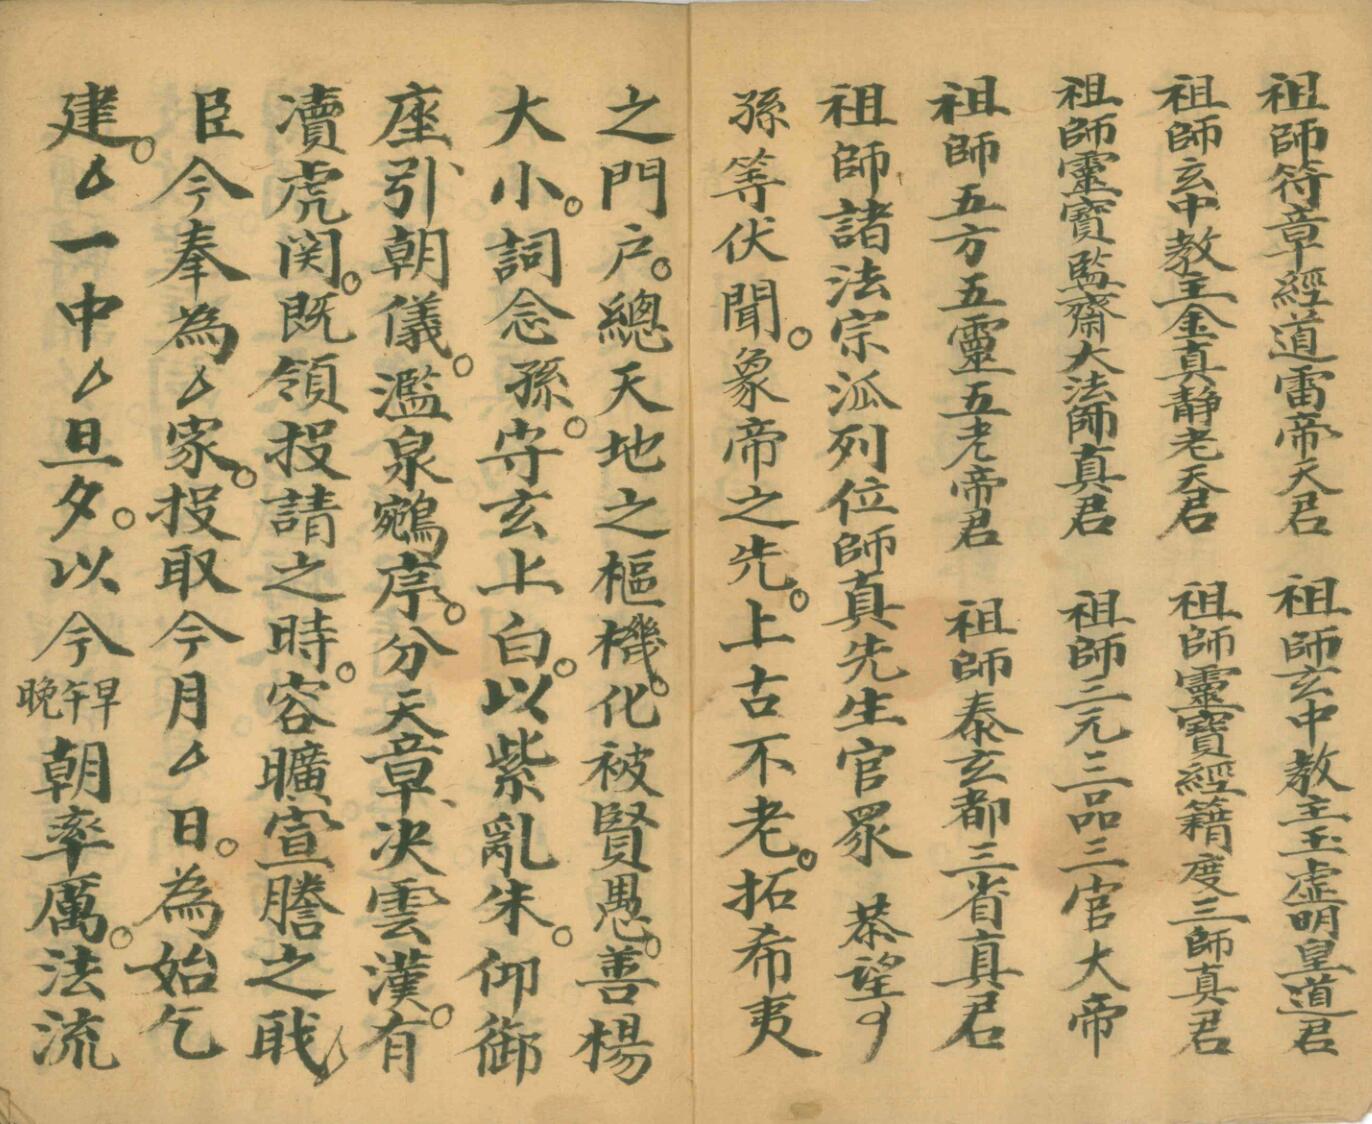 祖師符章經道雷帝天君 祖師玄中教主玉虚明皇道君
祖師玄中教主金真静老天君 祖師靈寶經籍度三師真君
祖師靈寶監齋大法師真君 祖師三元三品三官大帝
祖師五方五靈五老帝君 祖師泰玄都三省真君
祖師諸法宗泒列位師真先生官眾 恭望
孫等伏聞。象帝之先。上古不老。拓希夷
之門户。總天地之樞機。化被賢愚。善楊
大小。詞念孫。守玄上白。以紫亂朱。仰御
座引朝儀。濫泉鵷序。分天章、决雲漢。有
瀆虎関。既領投請之時。容曠宣謄之戝
臣今奉為厶家。投取今月厶日。為始乞
建。厶一中厶旦夕。以今早午晚朝率厲。法流